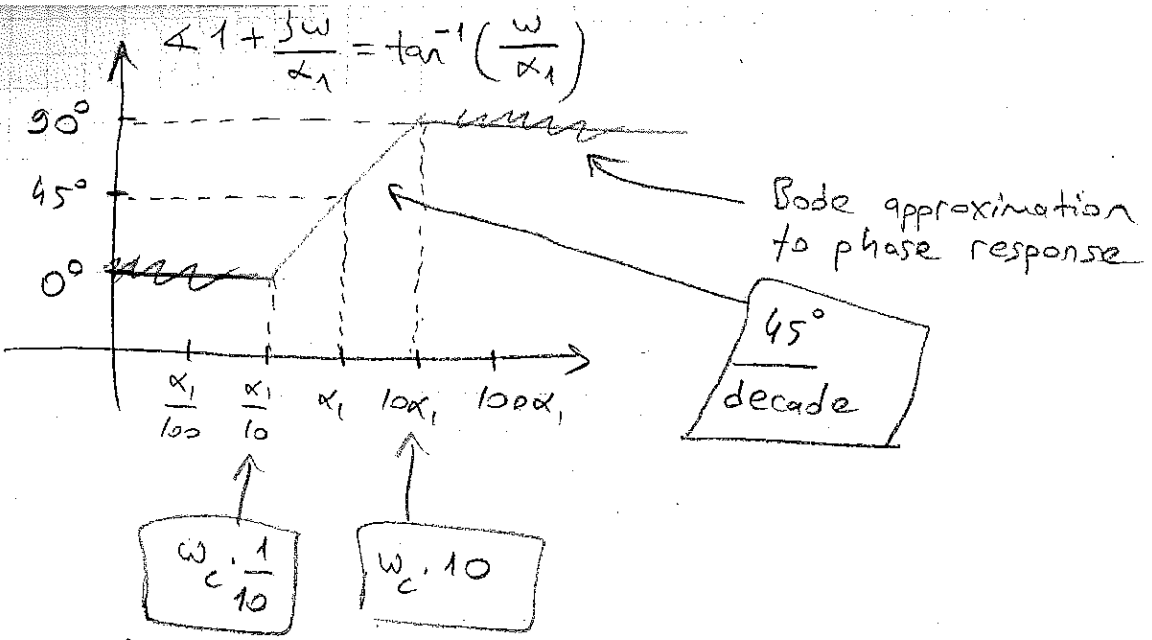 ∡ 1 + jω/α₁ = tan⁻¹(ω/α₁)
90°
45°
0°
Bode approximation
to phase response
45°
decade
α₁/100 α₁/10 α₁ 10α₁ 100α₁
ω_c · 1/10
ω_c · 10